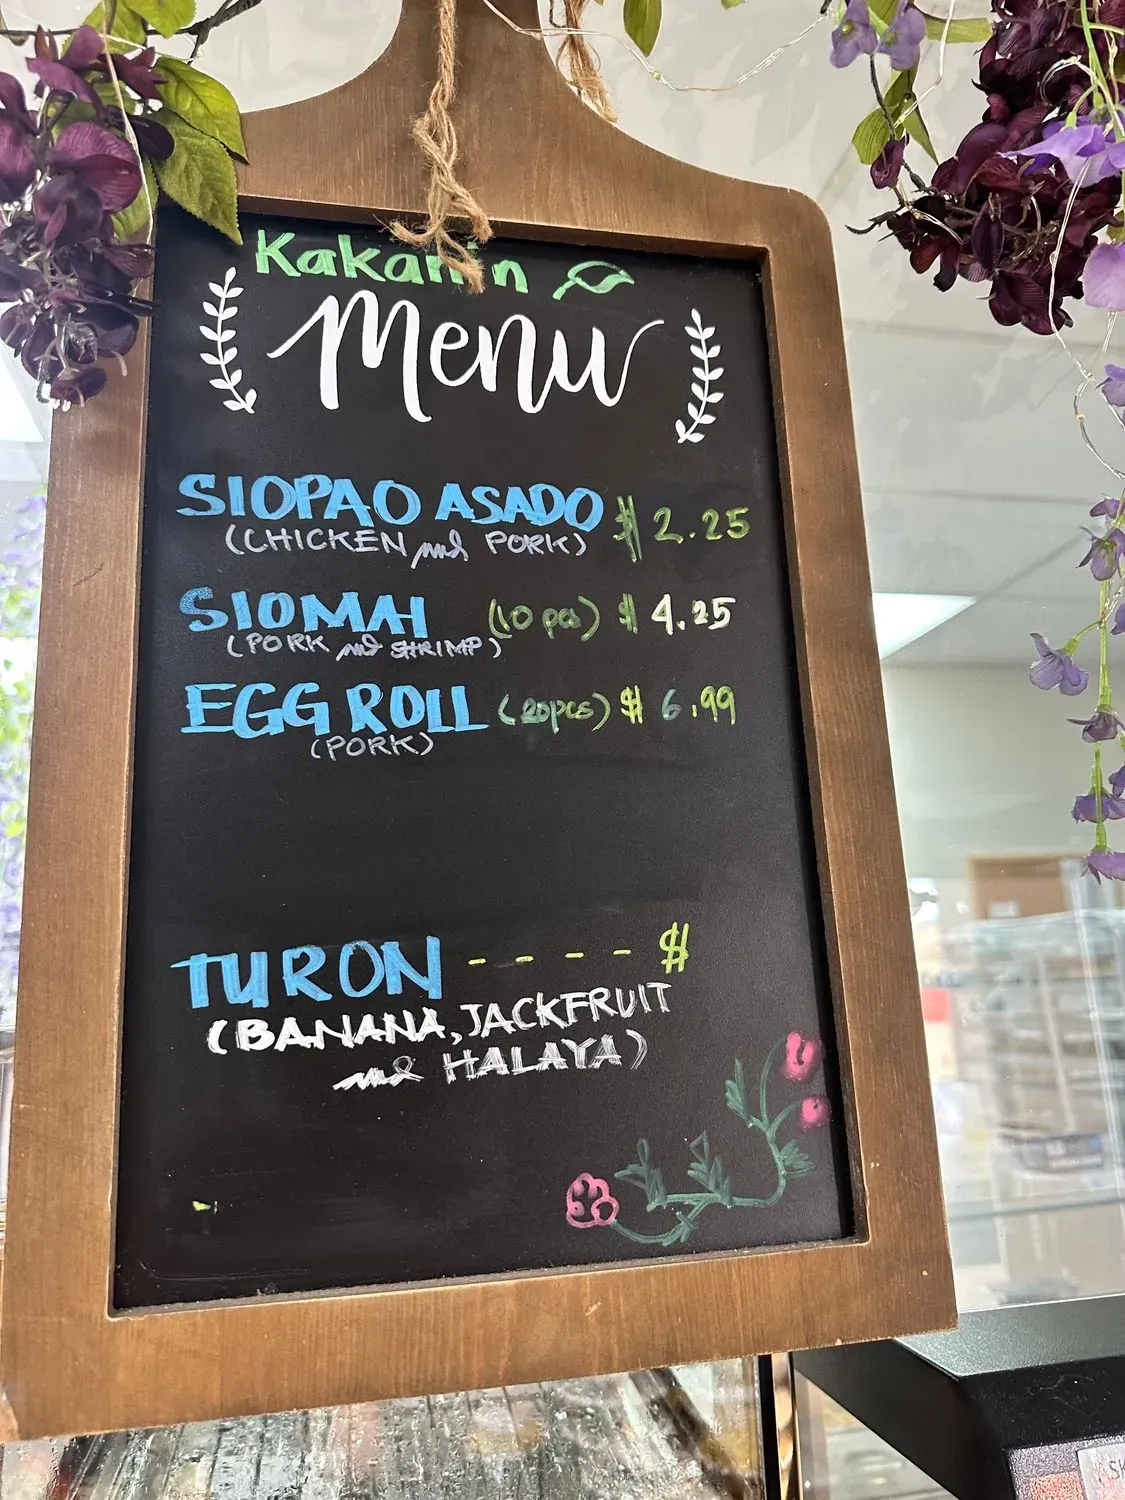 Kakanin
Menu
SIOPAO ASADO $ 2.25
(CHICKEN and PORK)
SIOMAI (10 pcs) $ 4.25
(PORK and SHRIMP)
EGG ROLL (20pcs) $ 6.99
(PORK)
TURON - - - - $
(BANANA, JACKFRUIT
and HALAYA)